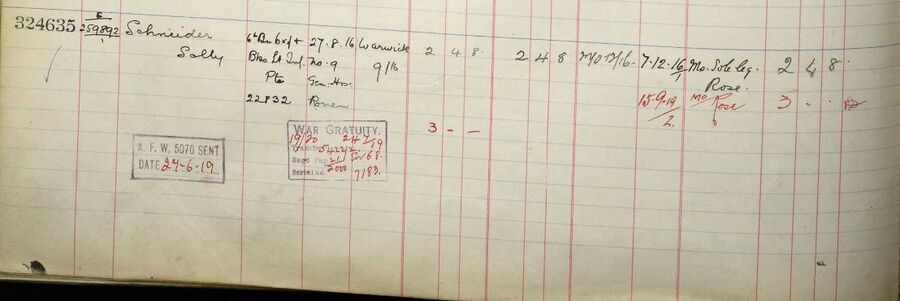 324635 E 259892 1 Schneider 6th Bn Oxf + 27.8.16 Warwick 2 4 8 2 4 8 7.12.16 Mo. Sole Leg. 2 4 8
Solly Bks Lt Inf. No. 9 9/16 Rose.
Pte Gen. Hos. 15.9.19 Mo Rose 3 - -
22832 Rouen 2 6
3 - -
WAR GRATUITY.
19/20 24 7/19
A. F. W. 5070 SENT
DATE 24-6-19
Regd Pap 21/2000
Serial No. 7183.